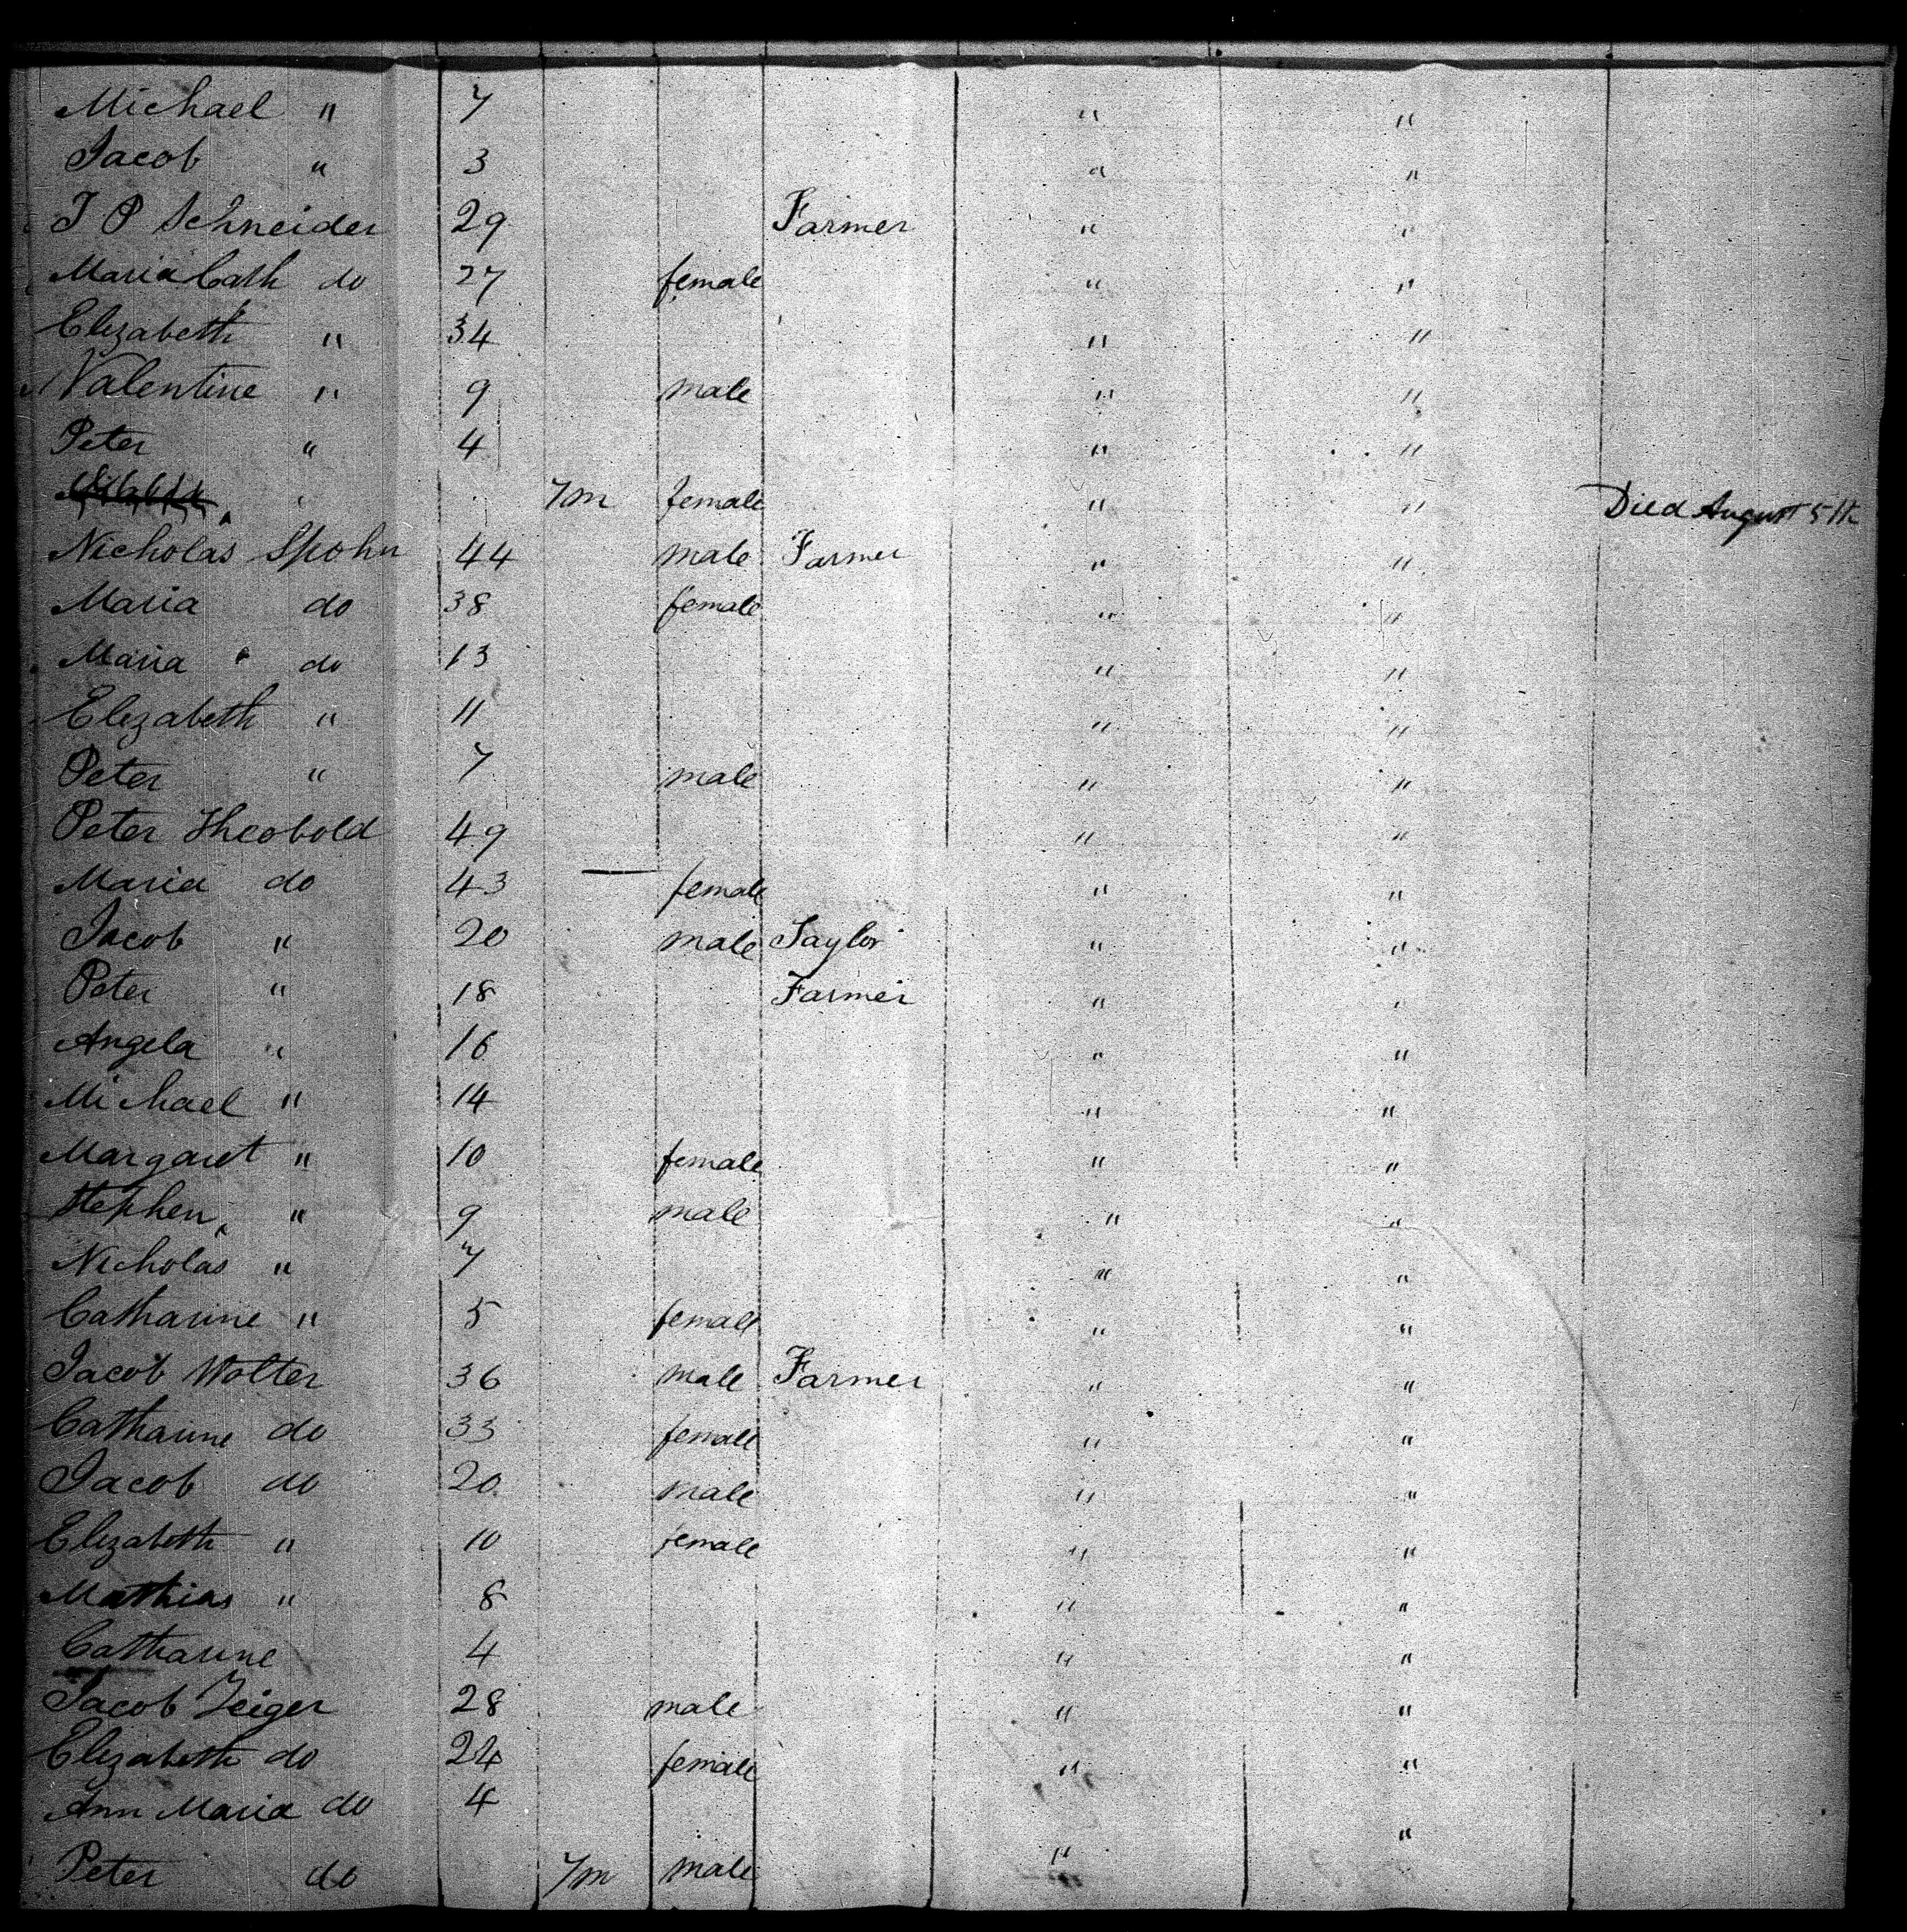 Michael " 7 " "
Jacob " 3 " "
J P Schneider 29 Farmer " "
Maria Cath do 27 female " "
Elizabeth " 34 " "
Valentine " 9 male " "
Peter " 4 " "
" 7m female " " Died August 5th
Nicholas Spohn 44 male Farmer " "
Maria do 38 female " "
Maria do 13 " "
Elezabeth " 11 " "
Peter " 7 male " "
Peter Theobold 49 " "
Maria do 43 female " "
Jacob " 20 male Taylor " "
Peter " 18 Farmer " "
Angela " 16 " "
Michael " 14 " "
Margaret " 10 female " "
Stephen " 9 male " "
Nicholas " 7 " "
Catharine " 5 female " "
Jacob Wolter 36 male Farmer " "
Catharine do 33 female " "
Jacob do 20 male " "
Elizabeth " 10 female " "
Mathias " 8 " "
Catharine 4 " "
Jacob Zeiger 28 male " "
Elizabeth do 24 female " "
Ann Maria do 4 "
Peter do 7m male "